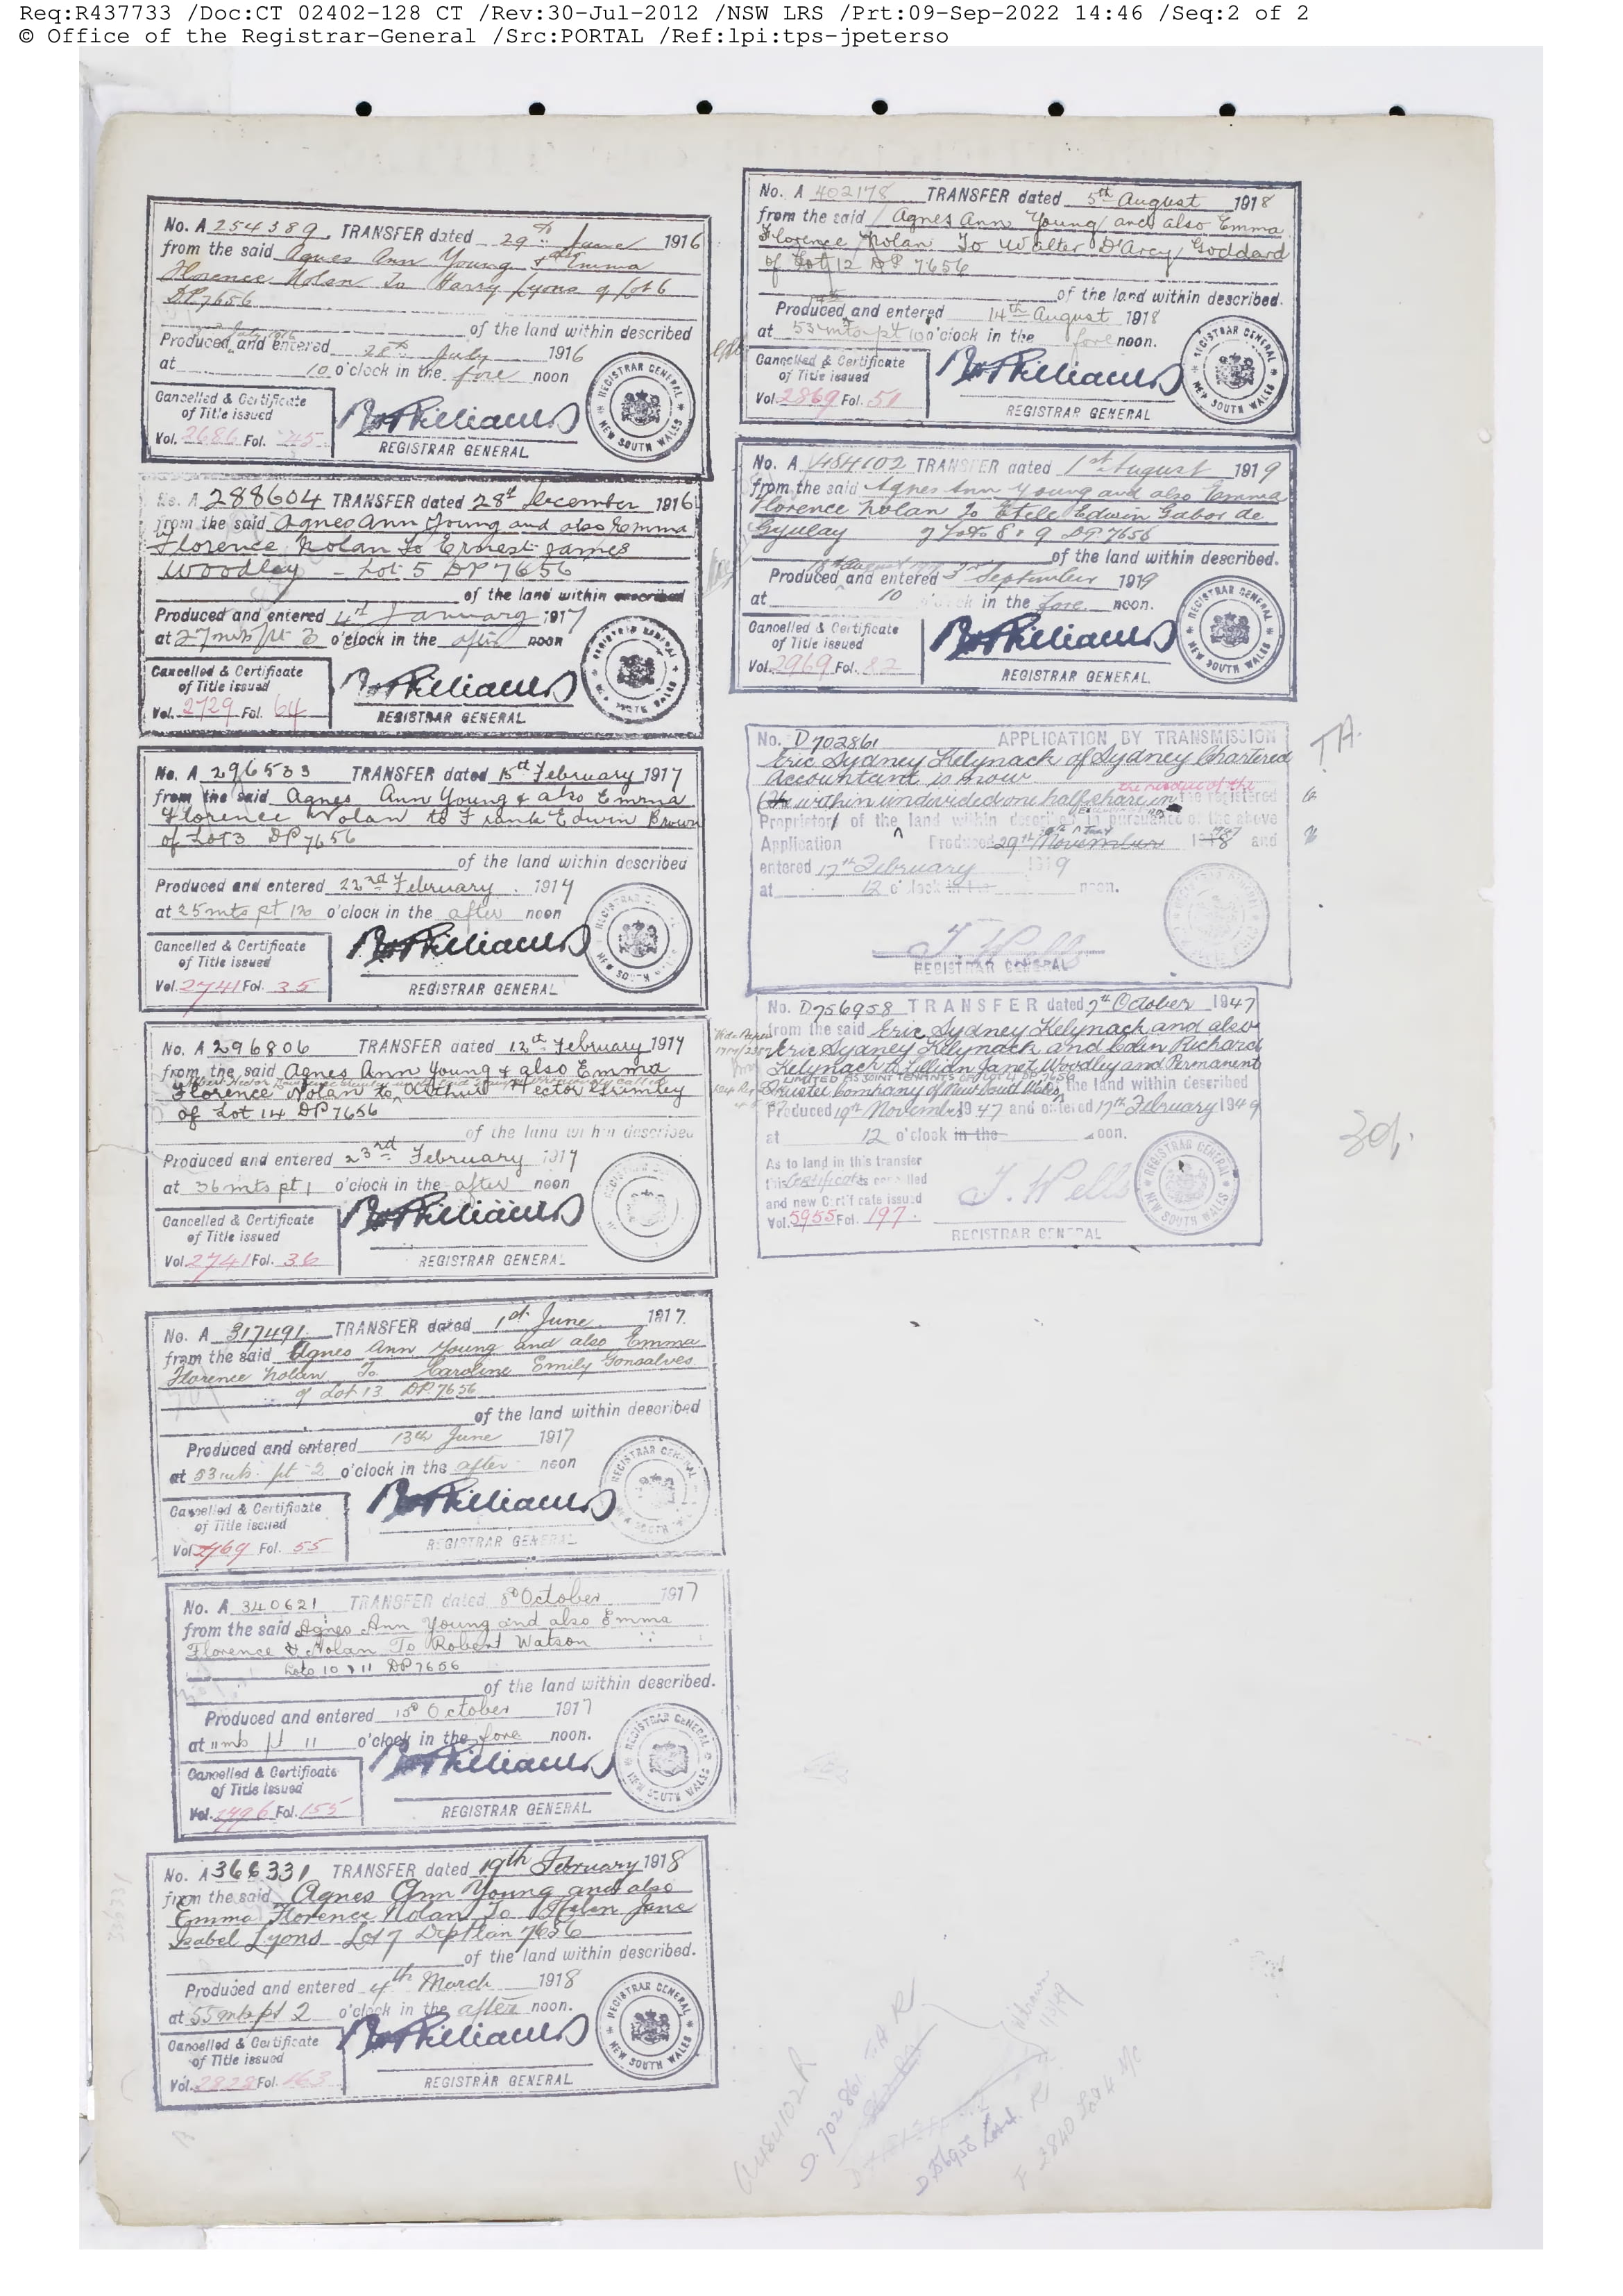 Req:R437733 /Doc:CT 02402-128 CT /Rev:30-Jul-2012 /NSW LRS /Prt:09-Sep-2022 14:46 /Seq:2 of 2
© Office of the Registrar-General /Src:PORTAL /Ref:lpi:tps-jpeterso
No. A 254389 TRANSFER dated 29th June 1916
from the said Agnes Ann Young & also Emma
Florence Nolan To Harry Lyons of Lot 6
DP 7656
of the land within described
Produced and entered 28th July 1916
at 10 o'clock in the fore noon
Cancelled & Certificate
of Title issued
Vol. 2686 Fol. 245
REGISTRAR GENERAL
REGISTRAR GENERAL NEW SOUTH WALES
No. A 288604 TRANSFER dated 28th December 1916
from the said Agnes Ann Young and also Emma
Florence Nolan To Ernest James
Woodley - Lot 5 DP 7656
of the land within described
Produced and entered 4th January 1917
at 27 mts pt 3 o'clock in the after noon
Cancelled & Certificate
of Title issued
Vol. 2729 Fol. 64
REGISTRAR GENERAL
No. A 296533 TRANSFER dated 15th February 1917
from the said Agnes Ann Young & also Emma
Florence Nolan to Frank Edwin Brown
of Lot 3 DP 7656
of the land within described
Produced and entered 22nd February 1917
at 25 mts pt 12 o'clock in the after noon
Cancelled & Certificate
of Title issued
Vol. 2741 Fol. 35
REGISTRAR GENERAL
No. A 296806 TRANSFER dated 12th February 1917
from the said Agnes Ann Young & also Emma
Florence Nolan to Arthur Hector Grimley
of Lot 14 DP 7656
of the land within described
Produced and entered 23rd February 1917
at 36 mts pt 1 o'clock in the after noon
Cancelled & Certificate
of Title issued
Vol. 2741 Fol. 36
REGISTRAR GENERAL
No. A 317491 TRANSFER dated 1st June 1917
from the said Agnes Ann Young and also Emma
Florence Nolan To Caroline Emily Gonsalves
of Lot 13 DP. 7656
of the land within described
Produced and entered 13th June 1917
at 53 mts pt 2 o'clock in the after noon
Cancelled & Certificate
of Title issued
Vol. 2769 Fol. 55
REGISTRAR GENERAL
No. A 340621 TRANSFER dated 8th October 1917
from the said Agnes Ann Young and also Emma
Florence Nolan To Robert Watson
Lots 10 & 11 DP 7656
of the land within described.
Produced and entered 15th October 1917
at 11 mts pt 11 o'clock in the fore noon.
Cancelled & Certificate
of Title issued
Vol. 2796 Fol. 155
REGISTRAR GENERAL
No. A 366331 TRANSFER dated 19th February 1918
from the said Agnes Ann Young and also
Emma Florence Nolan To Helen Jane
Isabel Lyons Lot 7 Dep Plan 7656
of the land within described.
Produced and entered 4th March 1918
at 55 mts pt 2 o'clock in the after noon.
Cancelled & Certificate
of Title issued
Vol. 2828 Fol. 163
REGISTRAR GENERAL
No. A 402178 TRANSFER dated 5th August 1918
from the said Agnes Ann Young and also Emma
Florence Nolan To Walter D'Arcy Goddard
of Lot 12 DP 7656
of the land within described.
Produced and entered 14th August 1918
at 53 mts pt 10 o'clock in the fore noon.
Cancelled & Certificate
of Title issued
Vol. 2869 Fol. 51
REGISTRAR GENERAL
No. A 484102 TRANSFER dated 1st August 1919
from the said Agnes Ann Young and also Emma
Florence Nolan To Etele Edwin Gabor de
Gyulay of Lots 8 & 9 DP. 7656
of the land within described.
Produced and entered 3rd September 1919
at 10 o'clock in the fore noon.
Cancelled & Certificate
of Title issued
Vol. 2969 Fol. 82
REGISTRAR GENERAL
No. D702861 APPLICATION BY TRANSMISSION
Eric Sydney Kelynack of Sydney Chartered
Accountant is now
the residue of the
within undivided one half share in the registered
Proprietor of the land within described in pursuance of the above
Application Produced 29th November and
entered 17th February 1949
at 12 o'clock in the noon.
J. Wells
REGISTRAR GENERAL
T.A.
No. D756958 TRANSFER dated 7th October 1947
from the said Eric Sydney Kelynack and also
Eric Sydney Kelynack and Colin Richard
Kelynack to Lillian Janet Woodley and Permanent
LIMITED AS JOINT TENANTS OF LOT 4 DP 7656
Trustee Company of New South Wales the land within described
Produced 19th November 1947 and entered 17th February 1949
at 12 o'clock in the noon.
As to land in this transfer
this Certificate is cancelled
and new Certificate issued
Vol. 5955 Fol. 197
J. Wells
REGISTRAR GENERAL
30/.
A484102 R
D. 702861 TA R
D756958 Lot 4 R